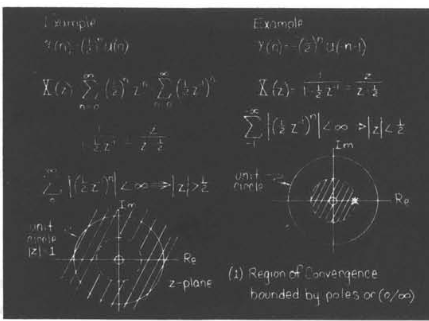 Example
x(n) = (½)ⁿ u(n)
X(z) = ∑_{n=0}^{∞} (½)ⁿ z⁻ⁿ = ∑_{n=0}^{∞} (½ z⁻¹)ⁿ
1/(1-½z⁻¹) = z/(z-½)
∑_{0}^{∞} |(½z⁻¹)ⁿ| < ∞ ⇒ |z| > ½
Im
unit
circle
|z|=1
Re
z-plane
Example
x(n) = -(½)ⁿ u(-n-1)
X(z) = 1/(1-½z⁻¹) = z/(z-½)
∑_{-1}^{-∞} |(½z⁻¹)ⁿ| < ∞ ⇒ |z| < ½
Im
unit
circle
Re
(1) Region of Convergence
bounded by poles or (0/∞)